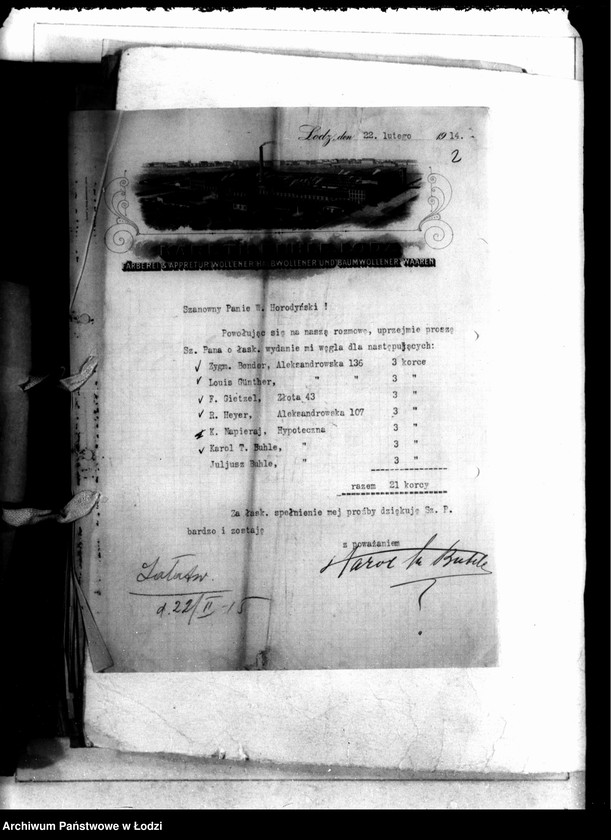 Lodz, den 22. lutego 1914.
2
FÄRBEREI & APPRETUR WOLLENER HALBWOLLENER UND BAUMWOLLENER WAAREN
Szanowny Panie W. Horodyński !
Powołując się na naszę rozmowę, uprzejmie proszę
Sz. Pana o łask. wydanie mi węgla dla następujących:
Zygm. Bender, Aleksandrowska 136 3 korce
Louis Günther, " " 3 "
F. Gietzel, Złota 43 3 "
R. Heyer, Aleksandrowska 107 3 "
K. Napieraj, Hypoteczna 3 "
Karol T. Buhle, " 3 "
Juljusz Buhle, " 3 "
razem 21 korcy
Za łask. spełnienie mej prośby dziękuję Sz. P.
bardzo i zostaję
z poważaniem
Karol Buhle
d. 22/II-15
Archiwum Państwowe w Łodzi